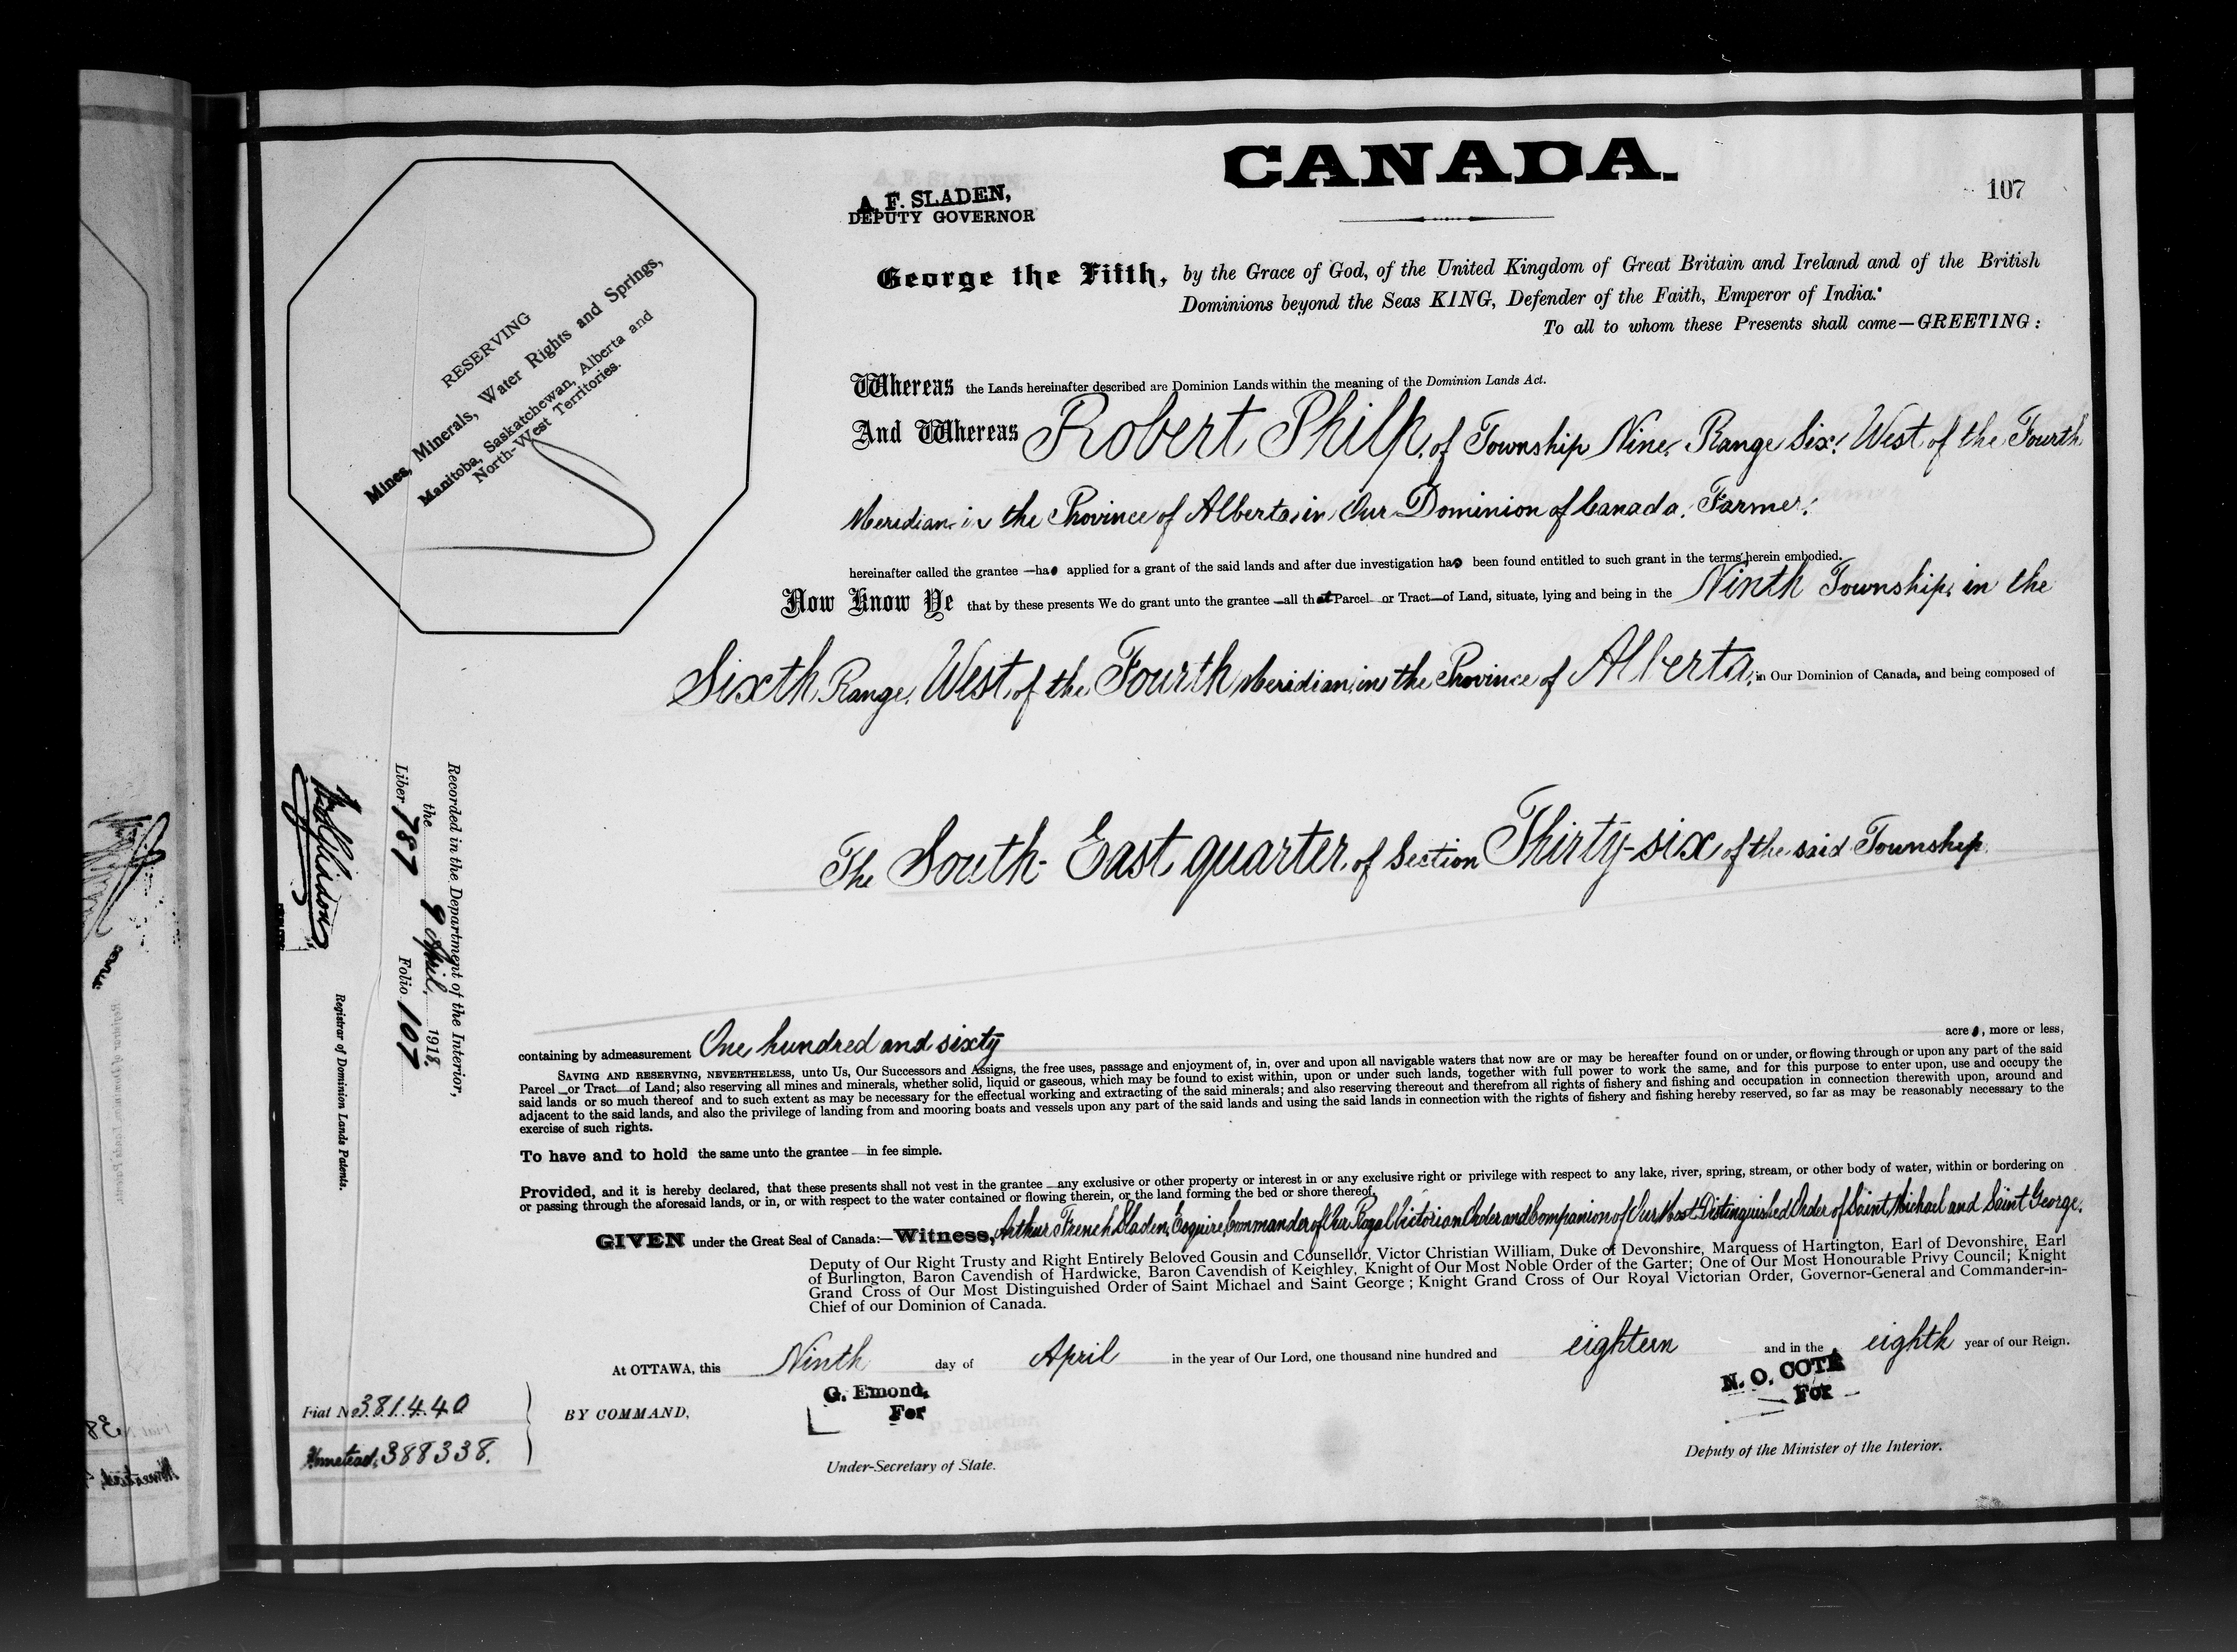 CANADA.
107
A. F. SLADEN,
DEPUTY GOVERNOR
RESERVING
Mines, Minerals, Water Rights and Springs,
Manitoba, Saskatchewan, Alberta and
North-West Territories.
George the Fifth, by the Grace of God, of the United Kingdom of Great Britain and Ireland and of the British
Dominions beyond the Seas KING, Defender of the Faith, Emperor of India.
To all to whom these Presents shall come—GREETING:
Whereas the Lands hereinafter described are Dominion Lands within the meaning of the Dominion Lands Act.
And Whereas Robert Philp, of Township Nine, Range Six, West of the Fourth
Meridian in the Province of Alberta, in Our Dominion of Canada, Farmer,
hereinafter called the grantee —has applied for a grant of the said lands and after due investigation has been found entitled to such grant in the terms herein embodied.
Now Know Ye that by these presents We do grant unto the grantee —all that Parcel or Tract—of Land, situate, lying and being in the Ninth Township, in the
Sixth Range, West of the Fourth Meridian, in the Province of Alberta, in Our Dominion of Canada, and being composed of
The South-East quarter of Section Thirty-six of the said Township
containing by admeasurement One hundred and sixty acres, more or less,
SAVING AND RESERVING, NEVERTHELESS, unto Us, Our Successors and Assigns, the free uses, passage and enjoyment of, in, over and upon all navigable waters that now are or may be hereafter found on or under, or flowing through or upon any part of the said
Parcel or Tract of Land; also reserving all mines and minerals, whether solid, liquid or gaseous, which may be found to exist within, upon or under such lands, together with full power to work the same, and for this purpose to enter upon, use and occupy the
said lands or so much thereof and to such extent as may be necessary for the effectual working and extracting of the said minerals; and also reserving thereout and therefrom all rights of fishery and fishing and occupation in connection therewith upon, around and
adjacent to the said lands, and also the privilege of landing from and mooring boats and vessels upon any part of the said lands and using the said lands in connection with the rights of fishery and fishing hereby reserved, so far as may be reasonably necessary to the
exercise of such rights.
To have and to hold the same unto the grantee — in fee simple.
Provided, and it is hereby declared, that these presents shall not vest in the grantee — any exclusive or other property or interest in or any exclusive right or privilege with respect to any lake, river, spring, stream, or other body of water, within or bordering on
or passing through the aforesaid lands, or in, or with respect to the water contained or flowing therein, or the land forming the bed or shore thereof.
GIVEN under the Great Seal of Canada:—Witness, Arthur French Sladen, Esquire, Commander of Our Royal Victorian Order and Companion of Our Most Distinguished Order of Saint Michael and Saint George.
Deputy of Our Right Trusty and Right Entirely Beloved Gousin and Counsellor, Victor Christian William, Duke of Devonshire, Marquess of Hartington, Earl of Devonshire, Earl
of Burlington, Baron Cavendish of Hardwicke, Baron Cavendish of Keighley, Knight of Our Most Noble Order of the Garter; One of Our Most Honourable Privy Council; Knight
Grand Cross of Our Most Distinguished Order of Saint Michael and Saint George; Knight Grand Cross of Our Royal Victorian Order, Governor-General and Commander-in-
Chief of our Dominion of Canada.
At OTTAWA, this Ninth day of April in the year of Our Lord, one thousand nine hundred and eighteen and in the eighth year of our Reign.
BY COMMAND,
G. Emond,
For
Under-Secretary of State.
N. O. COTÉ
For
Deputy of the Minister of the Interior.
Fiat No 381440
Homestead, 388338.
Recorded in the Department of the Interior,
the 9 April, 1918,
Liber 787 Folio 107
Registrar of Dominion Lands Patents.